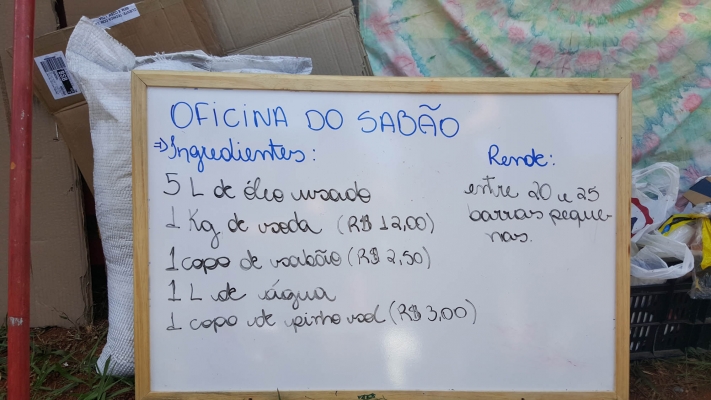 OFICINA DO SABÃO
⇒Ingredientes:
5 L de óleo usado
1 Kg de soda (R$ 12,00)
1 copo de sabão (R$ 2,50)
1 L de água
1 copo de pinho sol (R$ 3,00)
Rende:
entre 20 e 25
barras peque-
nas.